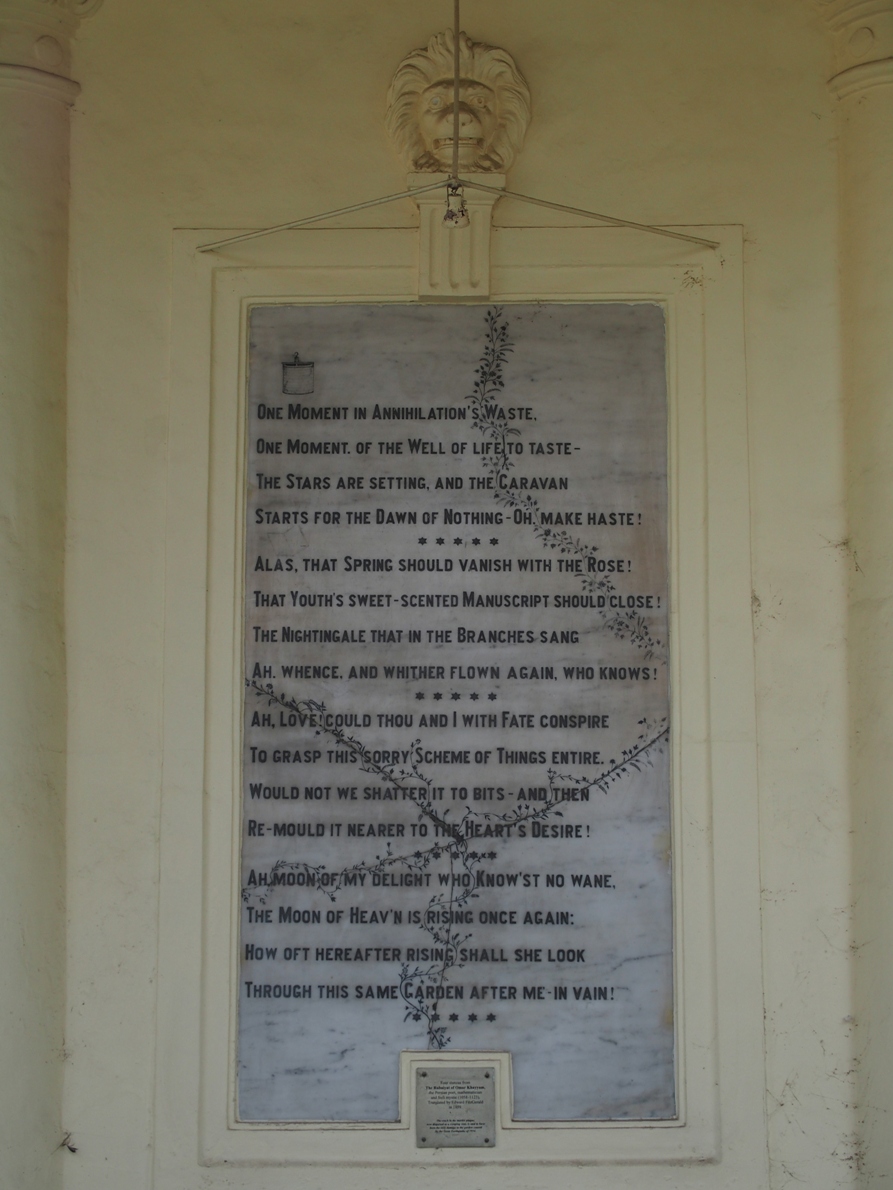 One Moment in Annihilation's Waste,
One Moment. of the Well of life to taste-
The Stars are setting, and the Caravan
Starts for the Dawn of Nothing-Oh, make haste!
* * * * *
Alas, that Spring should vanish with the Rose!
That Youth's sweet-scented Manuscript should close!
The Nightingale that in the Branches sang
Ah. whence. and whither flown again, who knows!
* * * * *
Ah, Love! could thou and I with Fate conspire
To grasp this sorry Scheme of Things entire.
Would not we shatter it to bits-and then
Re-mould it nearer to the Heart's Desire!
* * * * *
Ah, moon of my delight who Know'st no wane,
The Moon of Heav'n is rising once again:
How oft hereafter rising shall she look
Through this same Garden after me-in vain!
* * * * *
The Rubaiyat of Omar Khayyam